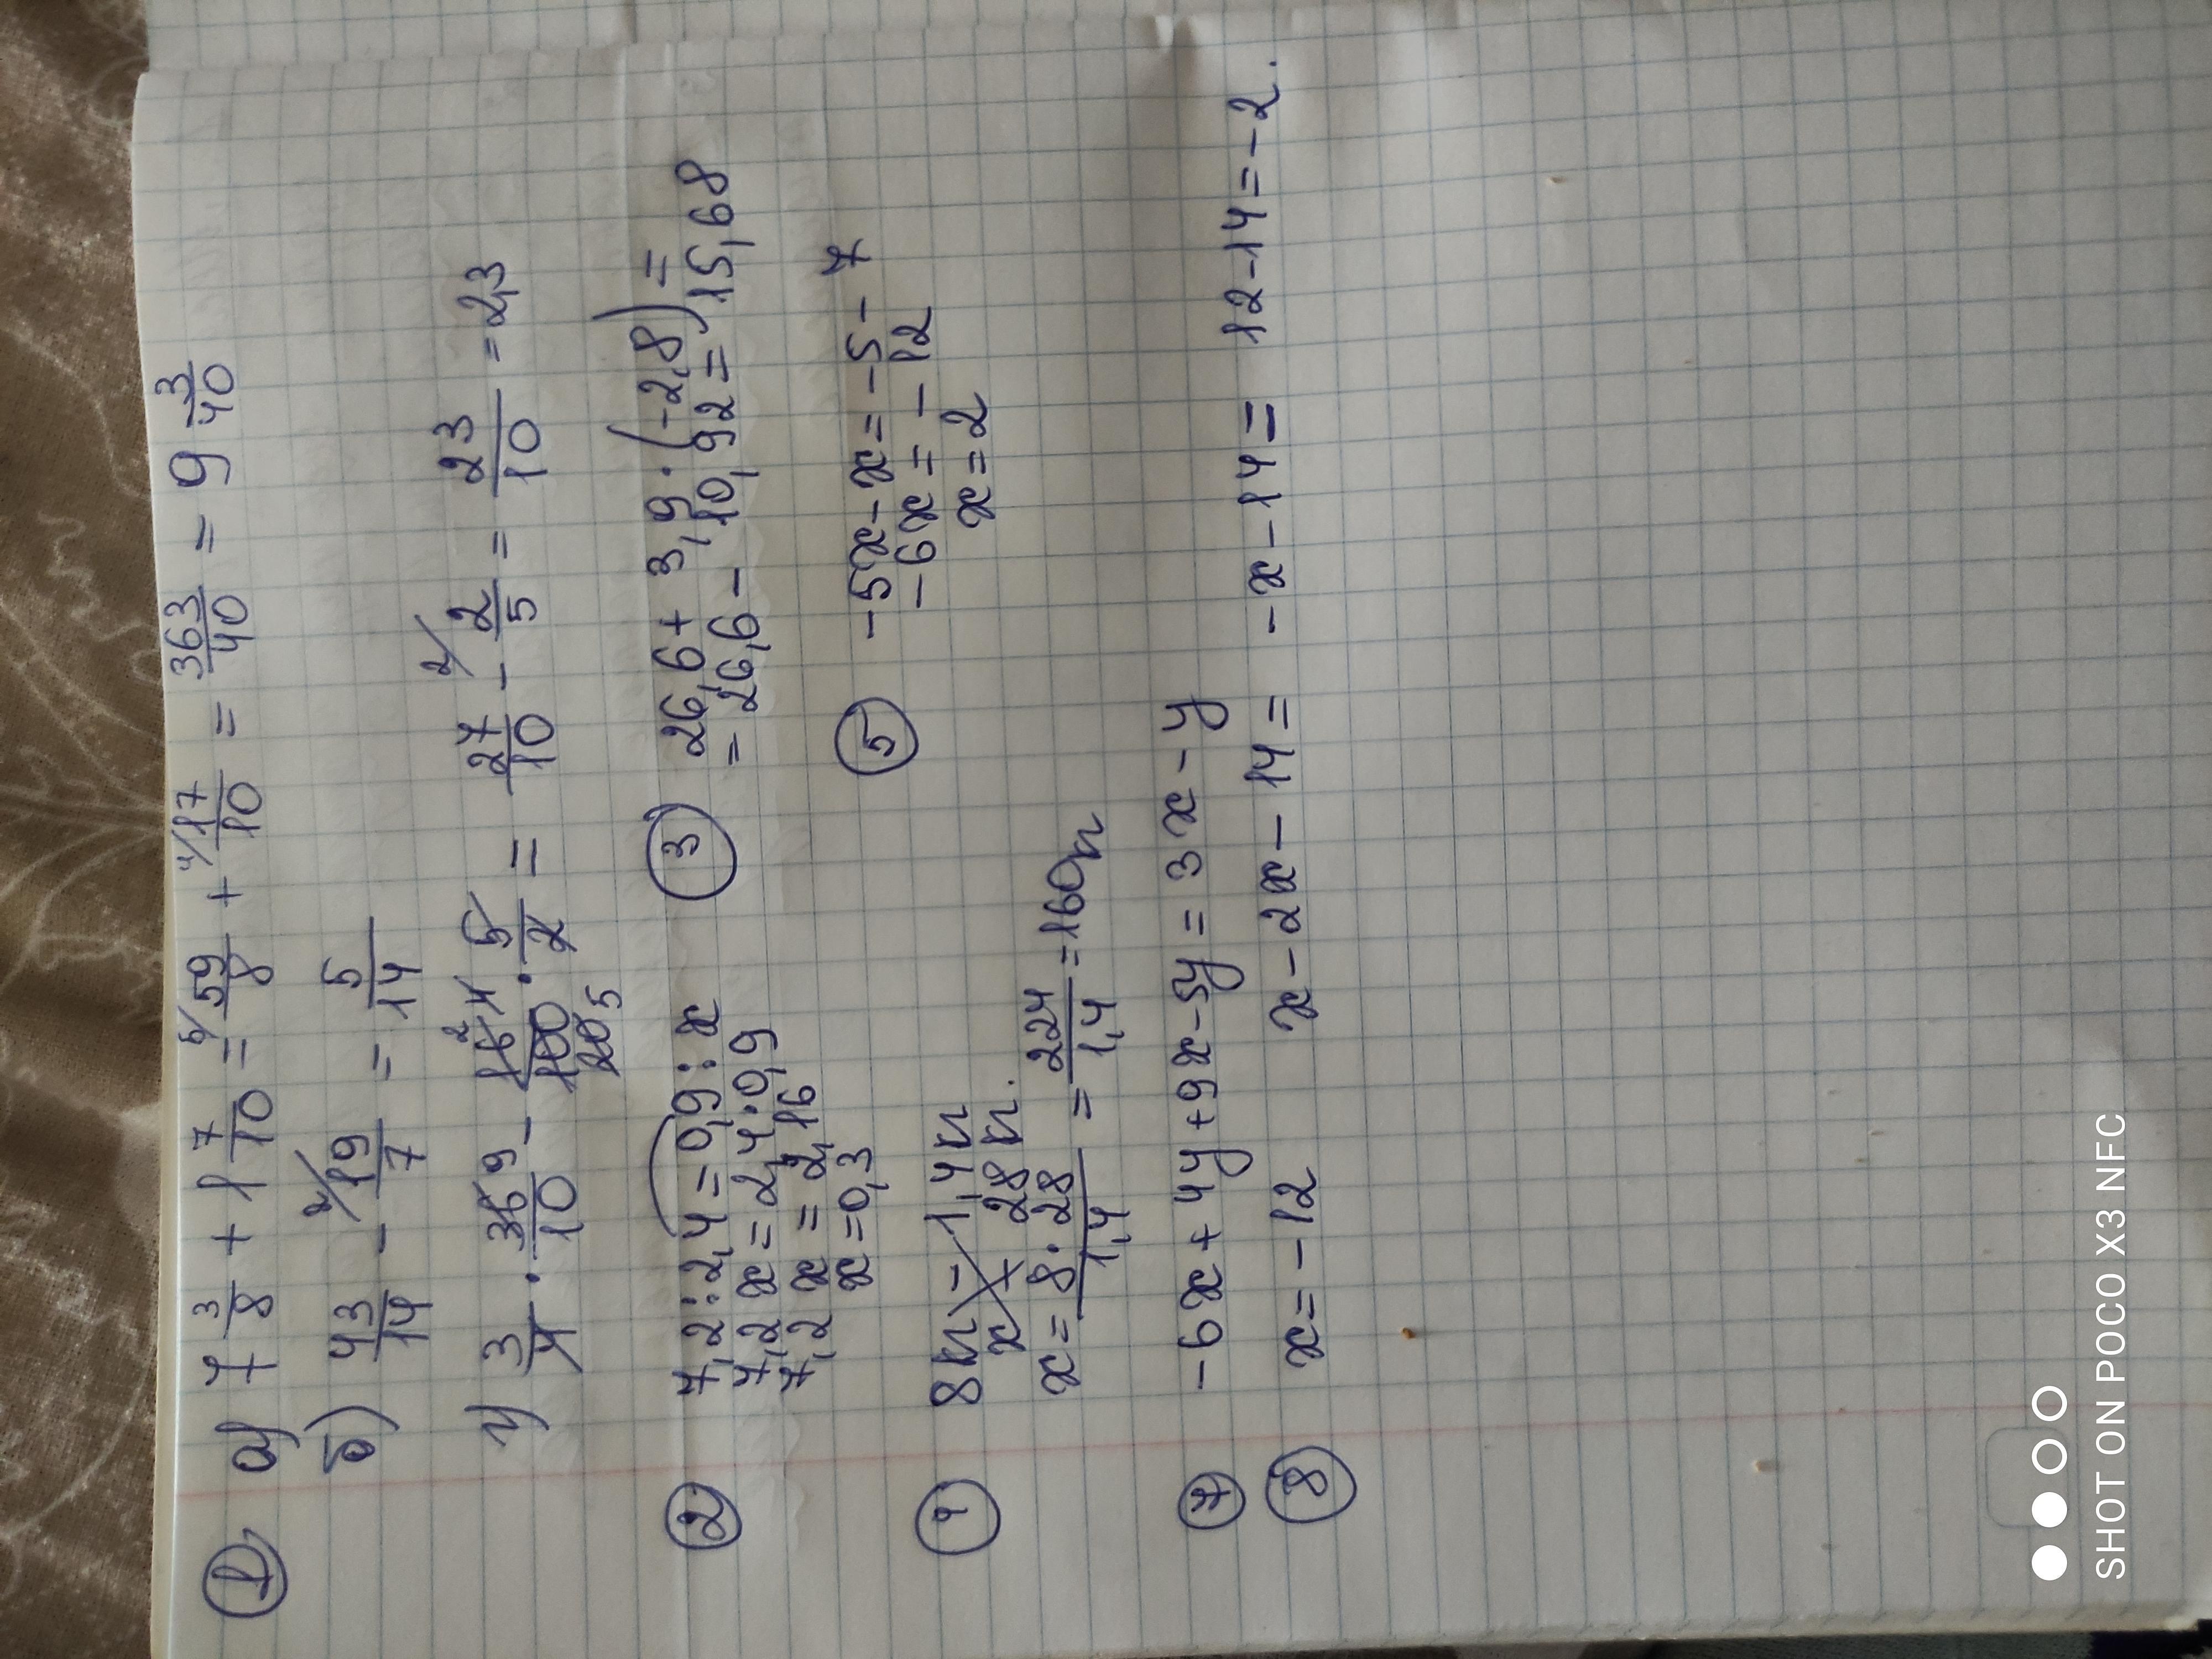 ① а) 7 3/8 + 1 7/10 = 5/ 59/8 + 4/ 17/10 = 363/40 = 9 3/40
б) 43/14 - 2/ 19/7 = 5/14
г) 3/4 · 36 9/10 - 16 2 4/100 20 5 · 5/2 = 27/10 - 2/ 2/5 = 23/10 = 2,3
② 7,2 : 2,4 = 0,9 : x
7,2 x = 2,4 · 0,9
7,2 x = 2,16
x = 0,3
③ 26,6 + 3,9 · (-2,8) =
= 26,6 - 10,92 = 15,68
8 л - 1,4 л
x - 28 л.
x = 8 · 28/1,4 = 224/1,4 = 160 л
⑤ -5x - x = -5 - 7
-6x = -12
x = 2
⑦ -6x + 4y + 9x - 5y = 3x - y
⑧ x = -12 x - 2x - 14 = -x - 14 = 12 - 14 = -2.
SHOT ON POCO X3 NFC